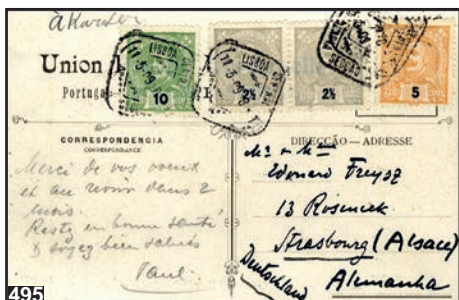 Union
Portuga
LISBOA
11-5-
10
LISBOA
11-5-
2½
2½
5
CORRESPONDENCIA
CORRESPONDANCE
DIRECÇÃO — ADRESSE
Merci de vos voeux
et au revoir dans 2
mois.
Restez en bonne santé
& soyez bien salués
Paul.
Mr & Mme
Edouard Freysz
13 Roseneck
Strasbourg (Alsace)
Deutschland Alemanha
495